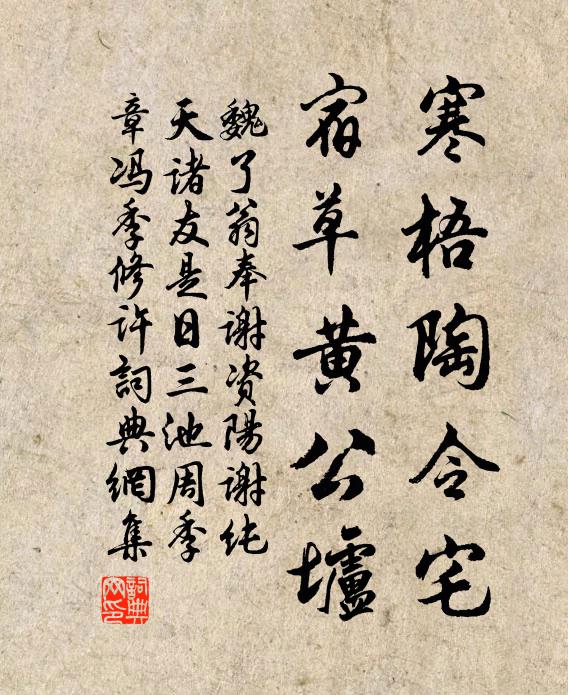 寒梧陶令宅
宿草黄公壚
魏了翁奉谢资陽谢纯
天诸友是日三池周季
章冯季修许詞典網集
詞典